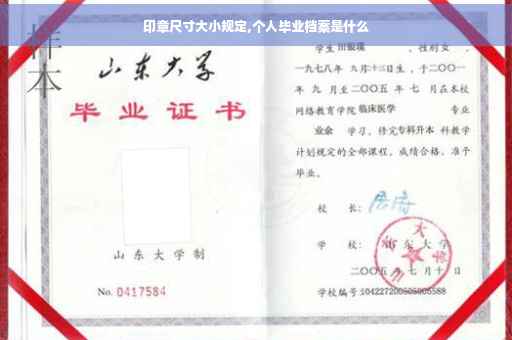 印章尺寸大小规定,个人毕业档案是什么
样本
山东大学
毕业证书
山东大学制
No. 0417584
学生 田银瑞 ,性别女 ,
一九七八年 九月十三日生,于二〇〇一
年 九 月至二〇〇五 年 七 月在本校
网络教育学院 临床医学 专业
业余 学习,修完专科升本 科教学
计划规定的全部课程,成绩合格,准予
毕业。
校 长:
学 校: 山东大学
二〇〇五 年 七 月 十 日
学校编号:104227200505005588